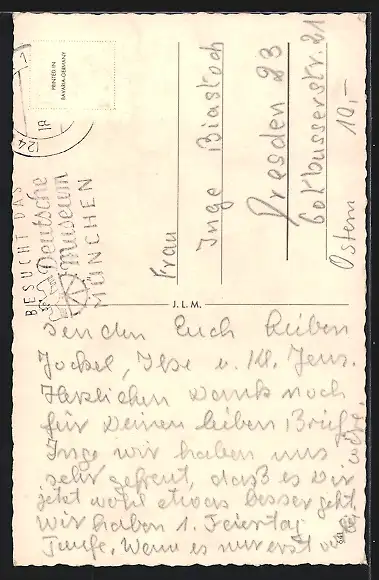 PRINTED IN
BAVARIA-GERMANY
BESUCHT DAS
Deutsche
Museum
MÜNCHEN
Frau
Inge Biastoch
Dresden 23
Cottbusserstr. 21
Ostern 10,-
J.L.M.
senden Euch lieben
Jockel, Ilse u. Kl. Jens.
Herzlichen Dank noch
für Deinen lieben Brief.
Inge wir haben uns
sehr gefreut, daß es Dir
jetzt wohl etwas besser geht
wir haben 1. Feiertag
Taufe. Wenn es nur erst